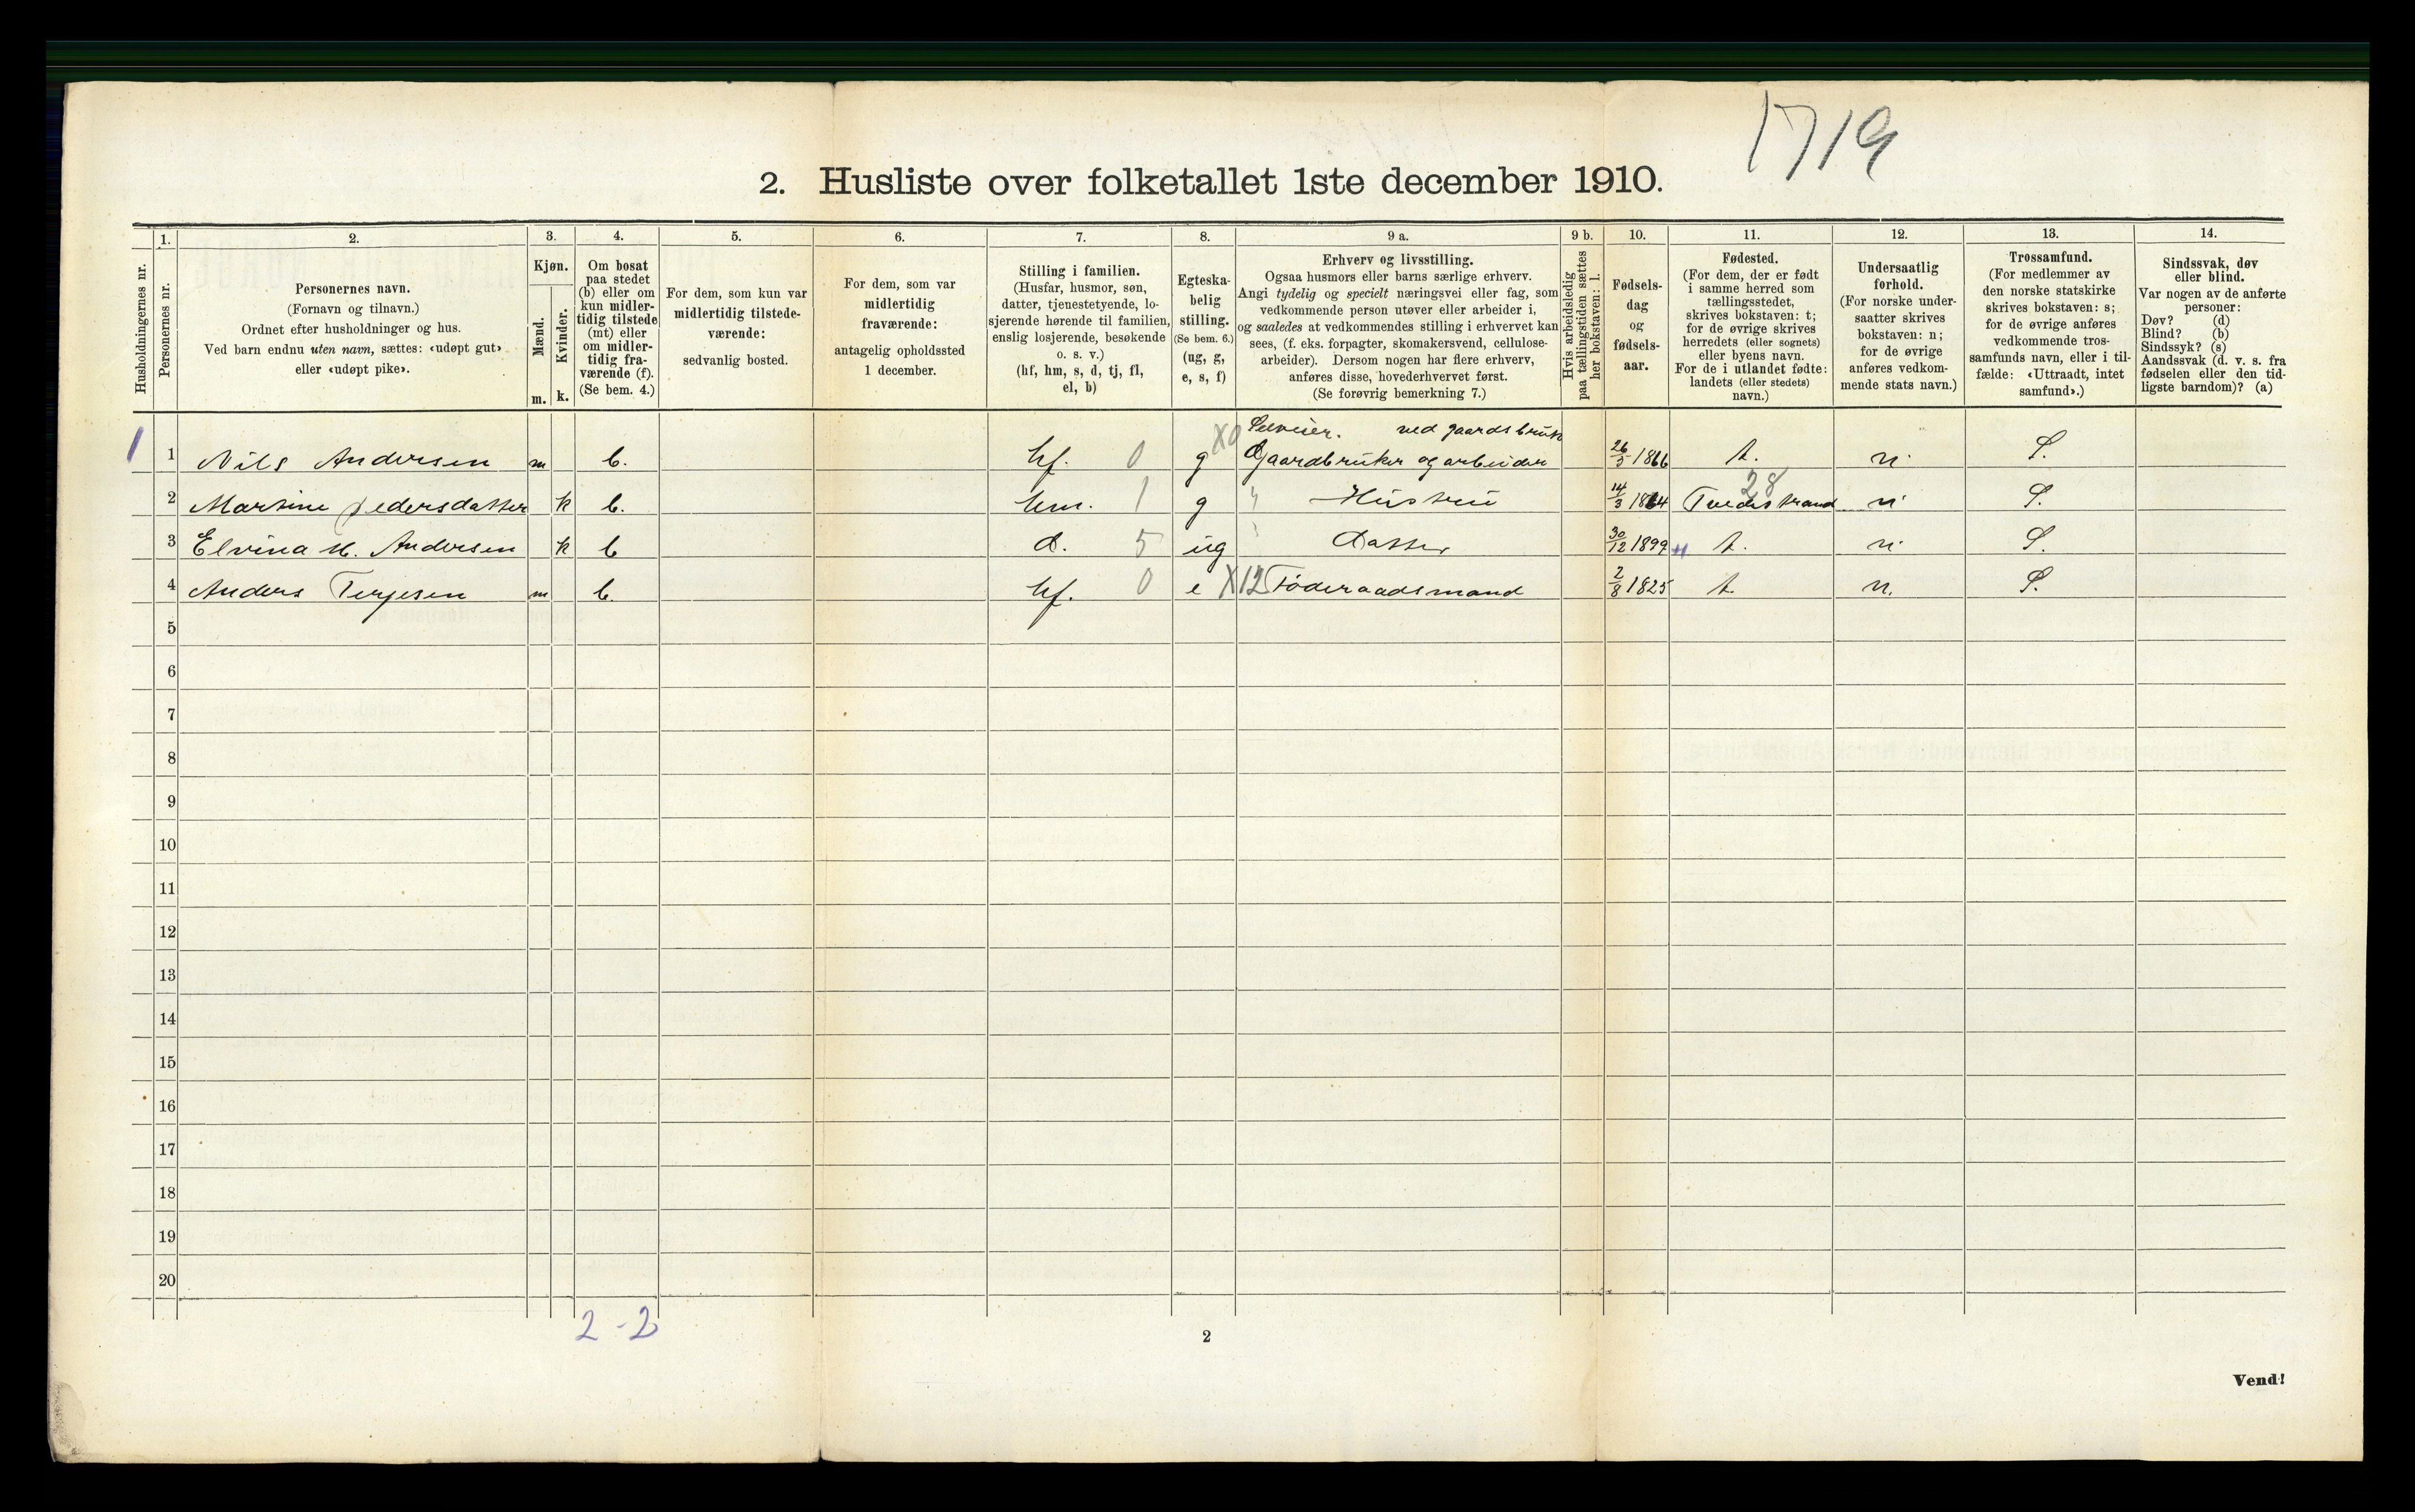 1719
2. Husliste over folketallet 1ste december 1910.
Husholdningernes nr.
1.
Personernes nr.
2.
Personernes navn.
(Fornavn og tilnavn.)
Ordnet efter husholdninger og hus.
Ved barn endnu uten navn, sættes: «udøpt gut»
eller «udøpt pike».
3.
Kjøn.
Mænd.
Kvinder.
m. k.
4.
Om bosat
paa stedet
(b) eller om
kun midler-
tidig tilstede
(mt) eller
om midler-
tidig fra-
værende (f).
(Se bem. 4.)
5.
For dem, som kun var
midlertidig tilstede-
værende:
sedvanlig bosted.
6.
For dem, som var
midlertidig
fraværende:
antagelig opholdssted
1 december.
7.
Stilling i familien.
(Husfar, husmor, søn,
datter, tjenestetyende, lo-
sjerende hørende til familien,
enslig losjerende, besøkende
o. s. v.)
(hf, hm, s, d, tj, fl,
el, b)
8.
Egteska-
belig
stilling.
(Se bem. 6.)
(ug, g,
e, s, f)
9 a.
Erhverv og livsstilling.
Ogsaa husmors eller barns særlige erhverv.
Angi tydelig og specielt næringsvei eller fag, som
vedkommende person utøver eller arbeider i,
og saaledes at vedkommendes stilling i erhvervet kan
sees, (f. eks. forpagter, skomakersvend, cellulose-
arbeider). Dersom nogen har flere erhverv,
anføres disse, hovederhvervet først.
(Se forøvrig bemerkning 7.)
9 b.
Hvis arbeidsledig
paa tællingstiden sættes
her bokstaven: l.
10.
Fødsels-
dag
og
fødsels-
aar.
11.
Fødested.
(For dem, der er født
i samme herred som
tællingsstedet,
skrives bokstaven: t;
for de øvrige skrives
herredets (eller sognets)
eller byens navn.
For de i utlandet fødte:
landets (eller stedets)
navn.)
12.
Undersaatlig
forhold.
(For norske under-
saatter skrives
bokstaven: n;
for de øvrige
anføres vedkom-
mende stats navn.)
13.
Trossamfund.
(For medlemmer av
den norske statskirke
skrives bokstaven: s;
for de øvrige anføres
vedkommende tros-
samfunds navn, eller i til-
fælde: «Uttraadt, intet
samfund».)
14.
Sindssvak, døv
eller blind.
Var nogen av de anførte
personer:
Døv? (d)
Blind? (b)
Sindssyk? (s)
Aandssvak (d. v. s. fra
fødselen eller den tid-
ligste barndom)? (a)
Selveier. ved gaardsbruk
1 1 Nils Andersen m b. hf. 0 g X0 Gaardbruker og arbeider 26/5 1866 t. n. S.
28
2 Martine Pedersdatter k b. hm. 1 g " Hustru 14/3 1864 Tvedestrand n. S.
3 Elvina M. Andersen k b d. 5 ug Datter 30/12 1899 t. n. S.
4 Anders Terjesen m b. hf. 0 e X12 Føderaadsmand 2/8 1825 t. n. S.
5
6
7
8
9
10
11
12
13
14
15
16
17
18
19
20
2-2
2
Vend!